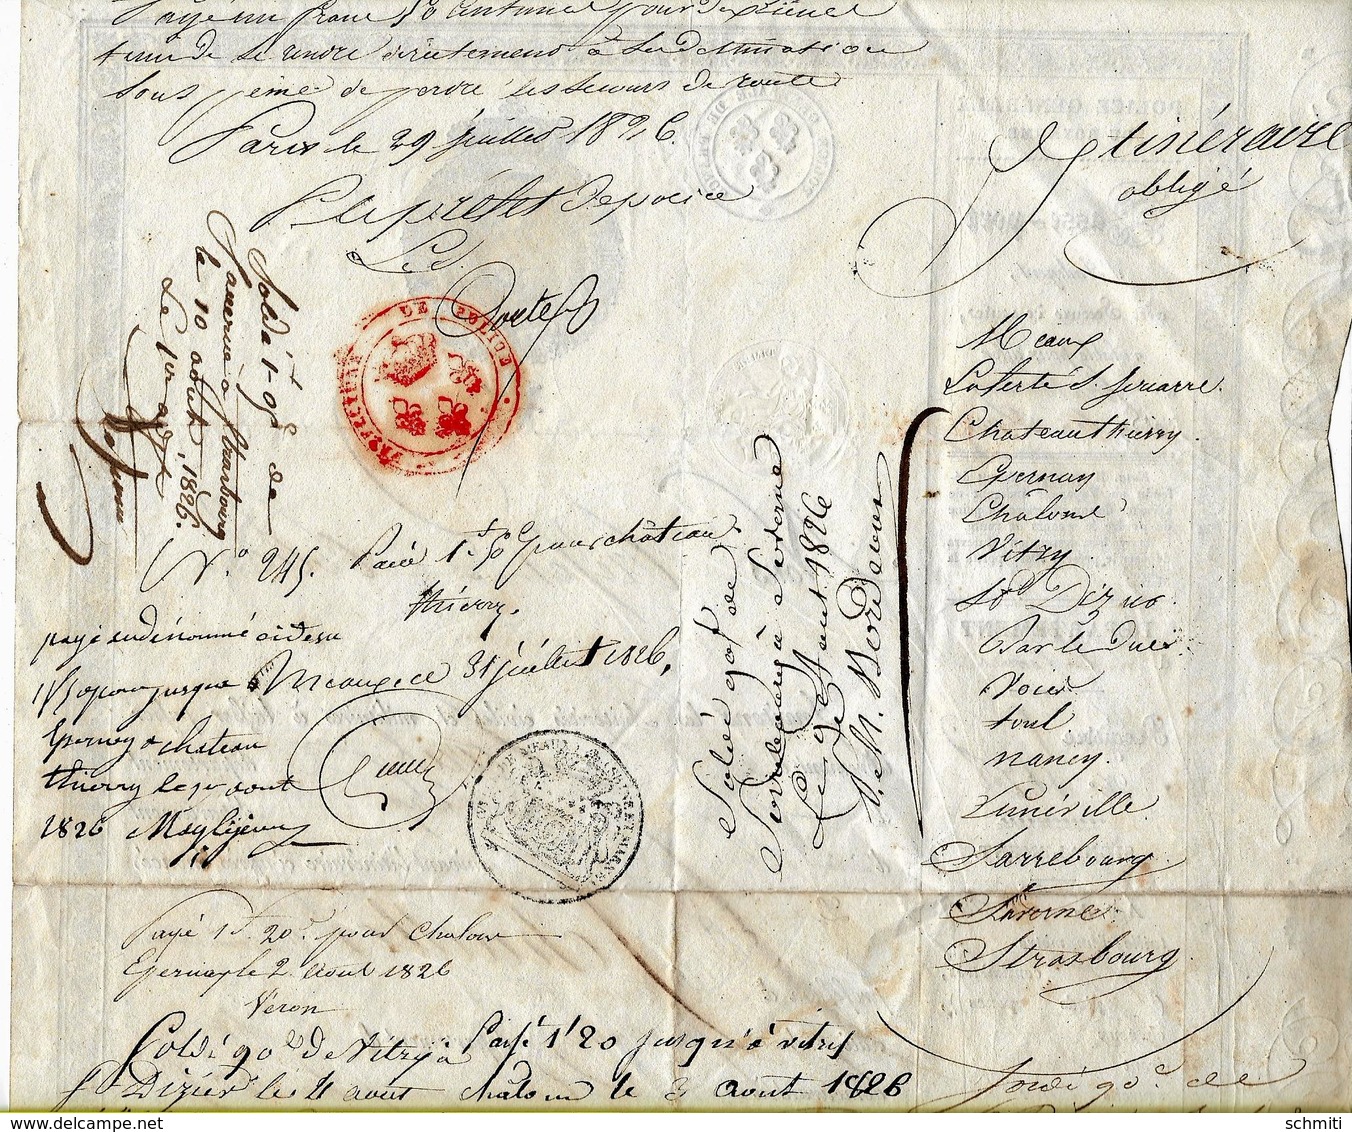 Payé un franc 50 centimes pour
tenu de se rendre directement à sa destination
sous peine de perdre les secours de route
Paris le 29 juillet 1826.
P. le préfet de police
Itinéraire
obligé
Meaux
Laferté s. Jouarre.
Chateauthierry
Epernay
Châlons
Vitry
St Dizier.
Bar le Duc
Void
toul
nancy
Lunéville
Sarrebourg
Saverne
Strasbourg
PREFECTURE DE POLICE
Soldé 1f 05c de
Saverne a Strasbourg
le 10 août 1826.
N.° 245. Payé 1f 50c pour château
thierry.
Meaux ce 31 juillet 1826,
payé au dénommé ci desu
1f 50 pour jusque
Epernay a chateau
thierry le 1er aout
1826
Soldé 90c de
Sarrebourg à Saverne
Le 9 août 1826
Payé 1f. 20c. pour Chalons
Epernay le 2 aout 1826
Véron
Payé 1f 20 jusqu'à vitry
châlons le 3 août 1826
Soldé 90c de Vitry à
St Dizier le 4 aout
Soldé 90c. de
schmiti